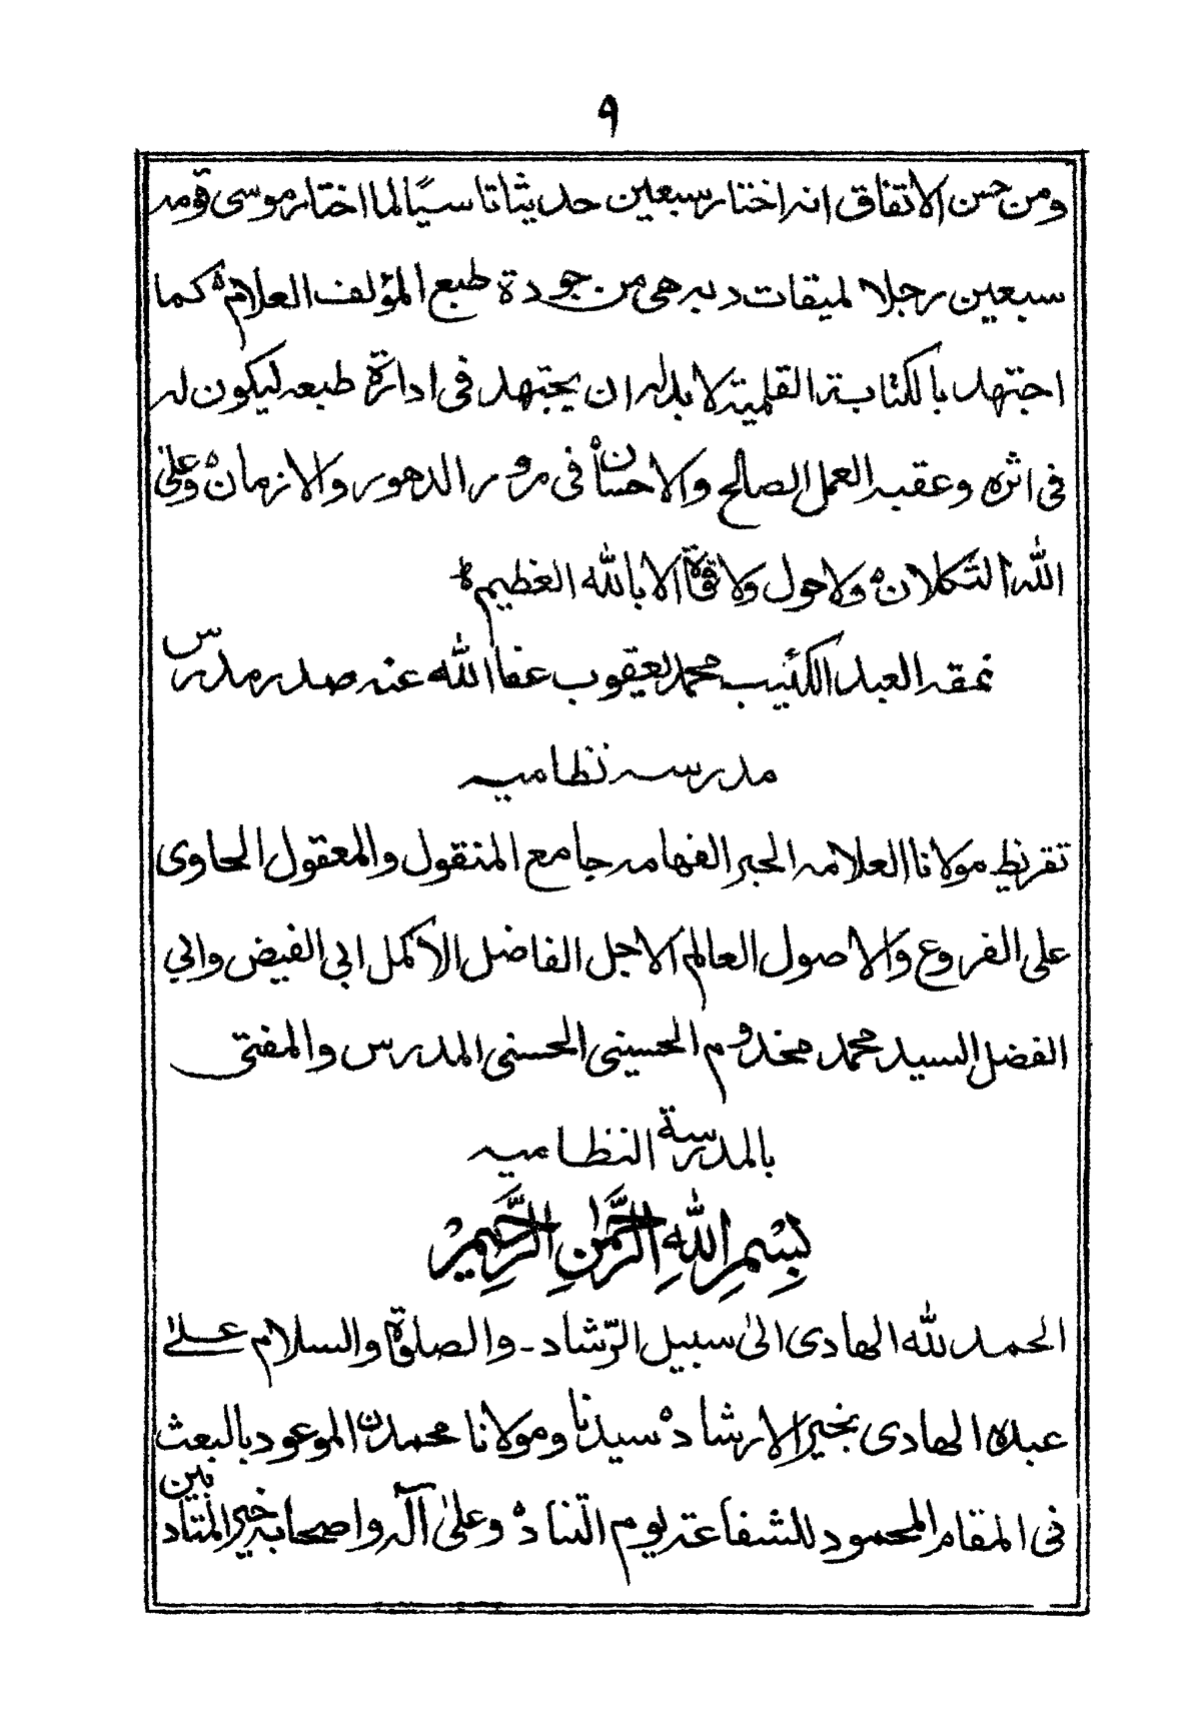 ٩
ومن حسن الاتفاق انه اختار سبعين حديثا تاسيًا لما اختار موسى قومه
سبعين رجلا لميقات ربه هى من جودة طبع المؤلف العلامه كما
اجتهد بالكتابة القلمية لا بد له ان يجتهد فى ادارة طبعه ليكون له
فى اثره وعقبه العمل الصالح والاحسان فى مرور الدهور والازمان وعلى
الله التكلان ولا حول ولا قوة الا بالله العظيم
نمقه العبد الكئيب محمد يعقوب عفا الله عنه صدر مدرس
مدرسه نظاميه
تقريظ مولانا العلامه الحبر الفهامه جامع المنقول والمعقول الحاوى
على الفروع والاصول العالم الاجل الفاضل الأكمل ابى الفيض وابي
الفضل السيد محمد مخدوم الحسينى الحسنى المدرس والمفتى
بالمدرسة النظاميه
بِسْمِ اللهِ الرَّحْمٰنِ الرَّحِيْمِ
الحمد لله الهادى الىٰ سبيل الرّشاد ـ والصلوٰة والسلام علىٰ
عبده الهادى بخير الارشاد ه سيدنا ومولانا محمدن الموعود بالبعث
فى المقام المحمود للشفاعة يوم التناد ه وعلىٰ آله واصحابه خير المتأدبين